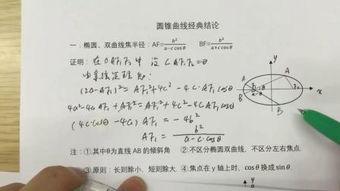 圆锥曲线经典结论
一．椭圆、双曲线焦半径：AF=b²/(a-c cosθ) BF=b²/(a+c cosθ)
证明：在△AF₁F₂中 设∠AF₁F₂=θ
由余弦定理得：
(2a-AF₁)²=AF₁²+4c²-4c·AF₁ cosθ
4a²-4a AF₁+AF₁²=AF₁²+4c²-4c AF₁ cosθ
(4c·cosθ-4a) AF₁ = -4b²
AF₁ = b²/(a-c·cosθ)
y
A
x
B
注：①其中θ为直线AB的倾斜角 ②不区分椭圆双曲线，不区分左右焦点
③原则：长则除小，短则除大 ④焦点在y轴上时，cosθ换成sinθ